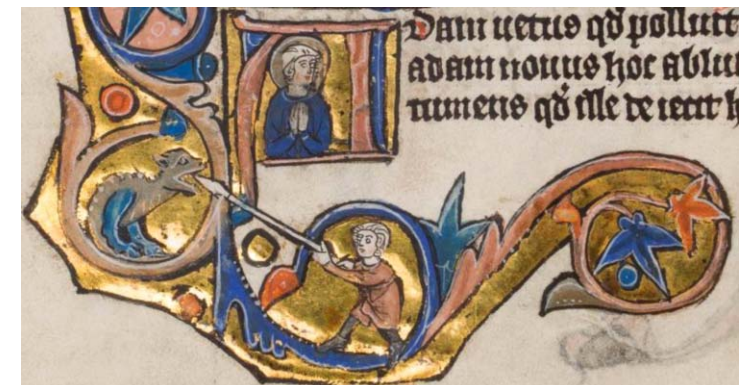 Adam uetus qd̄ polluit
adam nouus hoc ablui
tumens qd̄ ille deiecit h